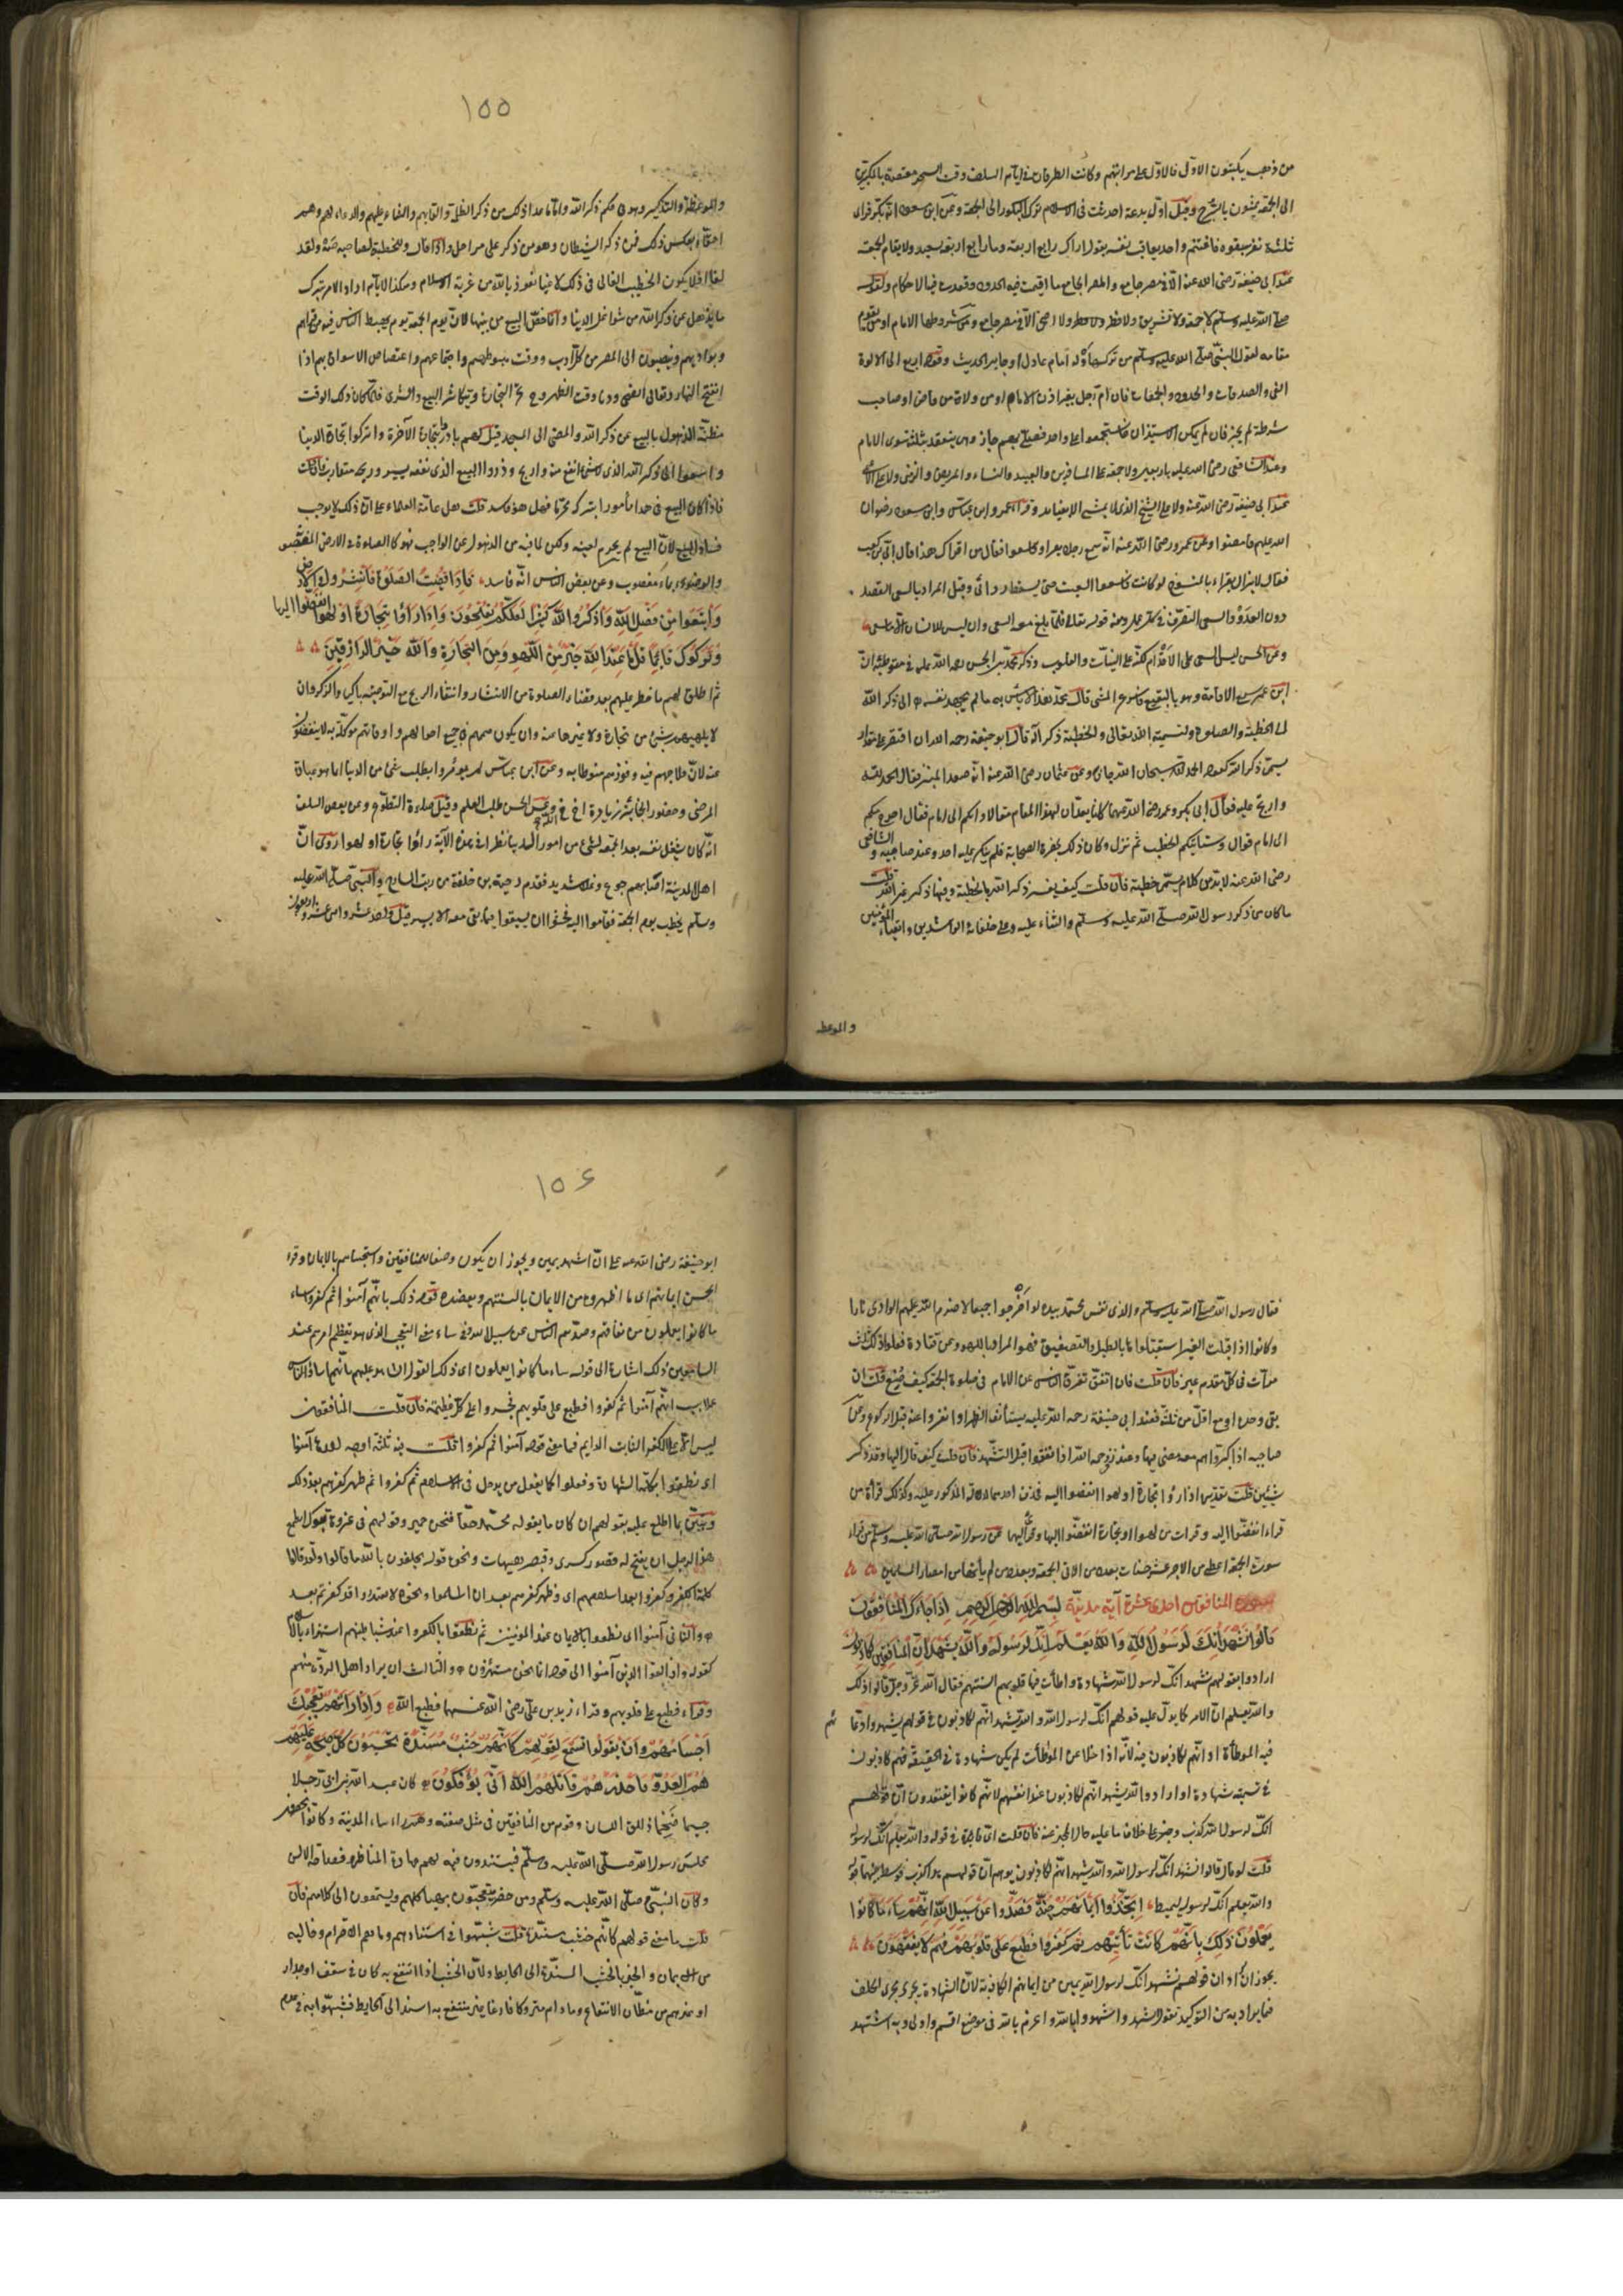 من ذهب يكتبون الاوّل فالاوّل على مراتبهم وكانت الطرقات في ايام السلف وقت السحر مغتصة بالمبكرين
الى الجمعة يمشون بالسُرُج وقيل اوّل بدعة احدثت في الاسلام ترك البكور الى الجمعة وعن ابن مسعود انه بكّر فراى
ثلثة نفر سبقوه فاغتم واخذ يعاتب نفسه يقول اراك رابع اربعة وما رابع اربعة بسعيد ولا يقام الجمعة
عند ابي حنيفة رضي الله عنه الا في مصر جامع والمصر الجامع ما اقيمت فيه الحدود ونفدت فيه الاحكام ولقوله
صلى الله عليه وسلم لا جمعة ولا تشريق ولا فطر ولا اضحى الا في مصر جامع ومن شروطها الامام او من يقوم
مقامه لقول النبي صلى الله عليه وسلم من تركها وله امام عادل او جاير الحديث وقوله اربع الى الولاة
الفئ والصدقات والحدود والجمعات فان امّ رجل بغير اذن الامام او من ولاه من قاض او صاحب
شرطة لم يجز فان لم يكن الاستيذان فاستجمعوا على واحد فصلى بهم جاز وهي ينعقد بثلثة سوى الامام
وعند الشافعي رضي الله عليه باربعين ولا جمعة على المسافرين والعبيد والنساء والمريض والزمنى ولا على الاعمى
عند ابي حنيفة رضي الله عنه ولا على الشيخ الذي لا يمشي الا بقايد وقراء عمر وابن عباس وابن مسعود رضوان
الله عليهم فامضوا وعن عمر رضي الله عنه انه سمع رجلا يقراء فاسعوا فقال من اقراك هذا قال ابيّ بن كعب
فقال لا يزال يقراء بالمنسوخ لو كانت فاسعوا لسعيت حتى يسقط ردائي وقيل المراد بالسعي القصد
دون العدو والسعي التصرف في كل عمل ومنه قوله تعالى فلما بلغ معه السعي وان ليس للانسان الا ما سعى
وعن الحسن ليس السعي على الاقدام لكنه على النيات والقلوب وذكر محمد بن الحسن رحمه الله عليه في موطئه ان
ابن عمر سمع الاقامة وهو بالبقيع فاسرع المشي قال محمد وهذا لا بأس به ما لم يجهد نفسه الى ذكر الله
الى الخطبة والصلوة ولتسمية الله تعالى الخطبة ذكرا له قال ابو حنيفة رحمه الله ان اقتصر على مقدار
يسمى ذكر الله كقوله الحمد لله سبحان الله جاز وعن عثمان رضي الله عنه انه صعد المنبر فقال الحمد لله
وارتج عليه فقال ان ابا بكر وعمر رضي الله عنهما كانا يعدان لهذا المقام مقالا وانكم الى امام فعال احوج منكم
الى امام قوال وستأتيكم الخطب ثم نزل وكان ذلك بحضرة الصحابة فلم ينكر عليه احد وعند صاحبيه والشافعي
رضي الله عنه لا بد من كلام يسمى خطبة فان قلت كيف يفسر ذكر الله بالخطبة وفيها ذكر غير الله قلت
ما كان من ذكر رسول الله صلى الله عليه وسلم والثناء عليه وعلى خلفائه الراشدين واتقياء المؤمنين
والموعظة
١٥٥
والموعظة والتذكير وهو في حكم ذكر الله واما ما عدا ذلك من ذكر الظلمة والقابهم والثناء عليهم والدعاء لهم وهم
احقاء بعكس ذلك فمن ذكر الشيطان وهو من ذكر على مراحل واذا قال المنصت للخطبة لصاحبه صه ولقد
لغا افلا يكون الخطيب الغالي في ذلك لاغيا نعوذ بالله من غربة الاسلام ونكد الايام اراد الامر بترك
ما يذهل عن ذكر الله من شواغل الدنيا وانما خص البيع من بينها لان يوم الجمعة يوم يهبط الناس فيه من قراهم
وبواديهم وينصبون الى المصر من كل اوب ووقت هبوطهم واجتماعهم واغتصاص الاسواق بهم اذا
انتفخ النهار وتعالى الضحى ودنا وقت الظهر وح تحر التجارة ويتكاثر البيع والشرى فلما كان ذلك الوقت
مظنة الذهول بالبيع عن ذكر الله والمضي الى المسجد قيل لهم بادروا تجارة الآخرة واتركوا تجارة الدنيا
واسعوا الى ذكر الله الذي لا شئ انفع منه واربح وذروا البيع الذي نفعه يسير وربحه متقارب فان قلت
فاذا كان البيع في هذا مأمورا بتركه محرما فهل هو فاسد قلت عامة العلماء على ان ذلك لا يوجب
فساد البيع لان البيع لم يحرم لعينه ولكن لما فيه من الذهول عن الواجب فهو كالصلوة في الارض المغصوبة
والوضوء بماء مغصوب وعن بعض الناس انه فاسد فاذا قضيت الصلوة فانتشروا في الارض
وابتغوا من فضل الله واذكروا الله كثيرا لعلكم تفلحون واذا راوا تجارة او لهوا انفضوا اليها
وتركوك قايما قل ما عند الله خير من اللهو ومن التجارة والله خير الرازقين
ثم اطلق لهم ما حظر عليهم بعد قضاء الصلوة من الانتشار وابتغاء الربح مع التوصية باكثار الذكر وان
لا يلهيهم شئ من تجارة ولا غيرها عنه وان يكون هممهم في جميع احوالهم واوقاتهم موكلة به لا ينفضون
عنه لان فلاحهم فيه وفوزهم منوط به وعن ابن عباس لم يؤمروا بطلب شئ من الدنيا انما هو عيادة
المرضى وحضور الجنائز وزيارة اخ في الله وعن الحسن طلب العلم وقيل صلوة التطوع وعن بعض السلف
انه كان يشغل نفسه بعد الجمعة بشئ من امور الدنيا نظرا في هذه الآية رأوا تجارة او لهوا روي ان
اهل المدينة اصابهم جوع وغلاء شديد فقدم دحية بن خليفة من زيت الشام والنبي صلى الله عليه
وسلم يخطب يوم الجمعة فقاموا اليه خشوا ان يسبقوا فما بقي معه الا يسير قيل احد عشر واثني عشر واربعون
فقال رسول الله صلى الله عليه وسلم والذي نفس محمد بيده لو اخرجوا جميعا لاضرم الله عليهم الوادي نارا
وكانوا اذا اقبلت العير استقبلوها بالطبل والتصفيق فهو المراد باللهو وعن قتادة فعلوا ذلك ثلث
مرات في كل مقدم عير فان قلت فان اتفق تفرق الناس عن الامام في صلوة الجمعة كيف يصنع قلت ان
بقي وحده او مع اقل من ثلثة فعند ابي حنيفة رحمة الله عليه يستأنف الظهر اذا نفروا عنه قبل الركوع وعن
صاحبيه اذا كبر وهم معه مضى فيها وعند زفر رحمه الله اذا نفروا قبل التشهد فان قلت كيف قال اليها وقد ذكر
شيئين قلت تقديره اذا رأوا تجارة او لهوا انفضوا اليه فحذف احدهما لدلالة المذكور عليه وكذلك قراءة من
قراء انفضوا اليه وقراءة من لهوا او تجارة انفضوا اليها وقرئ اليهما عن رسول الله صلى الله عليه وسلم من قراء
سورة الجمعة اعطي من الاجر عشر حسنات بعدد من اتى الجمعة وبعدد من لم يأتها من امصار المسلمين
سورة المنافقون احدى عشرة آية مدنية بسم الله الرحمن الرحيم اذا جاءك المنافقون
قالوا نشهد انك لرسول الله والله يعلم انك لرسوله والله يشهد ان المنافقين لكاذبون
ارادوا بقولهم نشهد انك لرسول الله شهادة واطأت فيها قلوبهم السنتهم فقال الله عز وجل قالوا ذلك
والله يعلم ان الامر كما يدل عليه قولهم انك لرسول الله والله يشهد انهم لكاذبون في قولهم نشهد وادعائهم
فيه المواطأة او انهم لكاذبون فيه لانه اذا خلا عن المواطأت لم يكن شهادة في الحقيقة فهم كاذبون
في تسميته شهادة او ارادوا والله يشهد انهم لكاذبون عند انفسهم لانهم كانوا يعتقدون ان قولهم
انك لرسول الله كذب وخبر على خلاف ما عليه حال المخبر عنه فان قلت اي فائدة في قوله والله يعلم انك لرسوله
قلت لو قال قالوا نشهد انك لرسول الله والله يشهد انهم لكاذبون يوهم ان قولهم هذا كذب فوسط بينهما قوله
والله يعلم انك لرسوله ليميط اتخذوا ايمانهم جنة فصدوا عن سبيل الله انهم ساء ما كانوا
يعملون ذلك بانهم كانت تأتيهم ثم كفروا فطبع على قلوبهم فهم لا يفقهون
يجوز ان يراد ان قولهم نشهد انك لرسول الله يمين من ايمانهم الكاذبة لان الشهادة يجري مجرى الحلف
فيما يراد به من التوكيد تقول اشهد واشهد بالله واعزم بالله في موضع اقسم واولى وبه استشهد
١٥٦
ابو حنيفة رضي الله عنه على ان اشهد يمين ويجوز ان يكون وصفا للمنافقين واستجنانهم بالايمان وقراء
الحسن ايمانهم اي ما اظهروه من الايمان بالسنتهم ويعضده قوله ذلك بانهم آمنوا ثم كفروا ساء
ما كانوا يعملون من نفاقهم وصدهم الناس عن سبيل الله وفي ساء معنى التعجب الذي هو تعظيم امرهم عند
السامعين ذلك اشارة الى قوله ساء ما كانوا يعملون اي ذلك القول الشاهد عليهم بانهم اسوأ الناس
اعمالا بسبب انهم آمنوا ثم كفروا فطبع على قلوبهم فجسروا على كل عظيمة فان قلت المنافقون
ليس الا على الكفر الثابت الدايم فما معنى قوله آمنوا ثم كفروا قلت فيه ثلثة اوجه احدها آمنوا
اي نطقوا بكلمة الشهادة وفعلوا كما يفعل من يدخل في الاسلام ثم كفروا ثم ظهر كفرهم بعد ذلك
وتبين بما اطلع عليه بقولهم ان كان ما يقوله محمد حقا فنحن حمير وقولهم في غزوة تبوك ايطمع
هذا الرجل ان يفتح له قصور كسرى وقيصر هيهات ونحوه قوله يحلفون بالله ما قالوا ولقد قالوا
كلمة الكفر وكفروا بعد اسلامهم اي وظهر كفرهم بعد ان اسلموا ونحوه لا تعتذروا قد كفرتم بعد
والثاني آمنوا اي نطقوا بالايمان عند المؤمنين ثم نطقوا بالكفر عند شياطينهم استهزاء بالاسلام
كقوله واذا لقوا الذين آمنوا الى قوله انما نحن مستهزؤن والثالث ان يراد اهل الردة منهم
وقراء فطبع على قلوبهم وقراء زيد بن علي رضي الله عنهما فطبع الله واذا رايتهم تعجبك
اجسامهم وان يقولوا تسمع لقولهم كانهم خشب مسندة يحسبون كل صيحة عليهم
هم العدو فاحذرهم قاتلهم الله انى يؤفكون كان عبد الله بن ابي رجلا
جسيما فصيحا ذلق اللسان وقوم من المنافقين في مثل صفته وهم رؤساء المدينة وكانوا يحضرون
مجلس رسول الله صلى الله عليه وسلم فيستندون فيه لهم جهارة المناظر وفصاحة الالسن
وكان النبي صلى الله عليه وسلم ومن حضر يتعجبون بهياكلهم ويستمعون الى كلامهم فان
قلت ما معنى قوله كانهم خشب مسندة قلت شبهوا في استنادهم وما هم الا اجرام خالية
من الايمان والخير بالخشب المسندة الى الحايط ولان الخشب اذا انتفع به كان في سقف او جدار
او غيرهما من مظان الانتفاع وما دام متروكا فارغا غير منتفع به اسند الى الحايط فشبهوا به في عدم